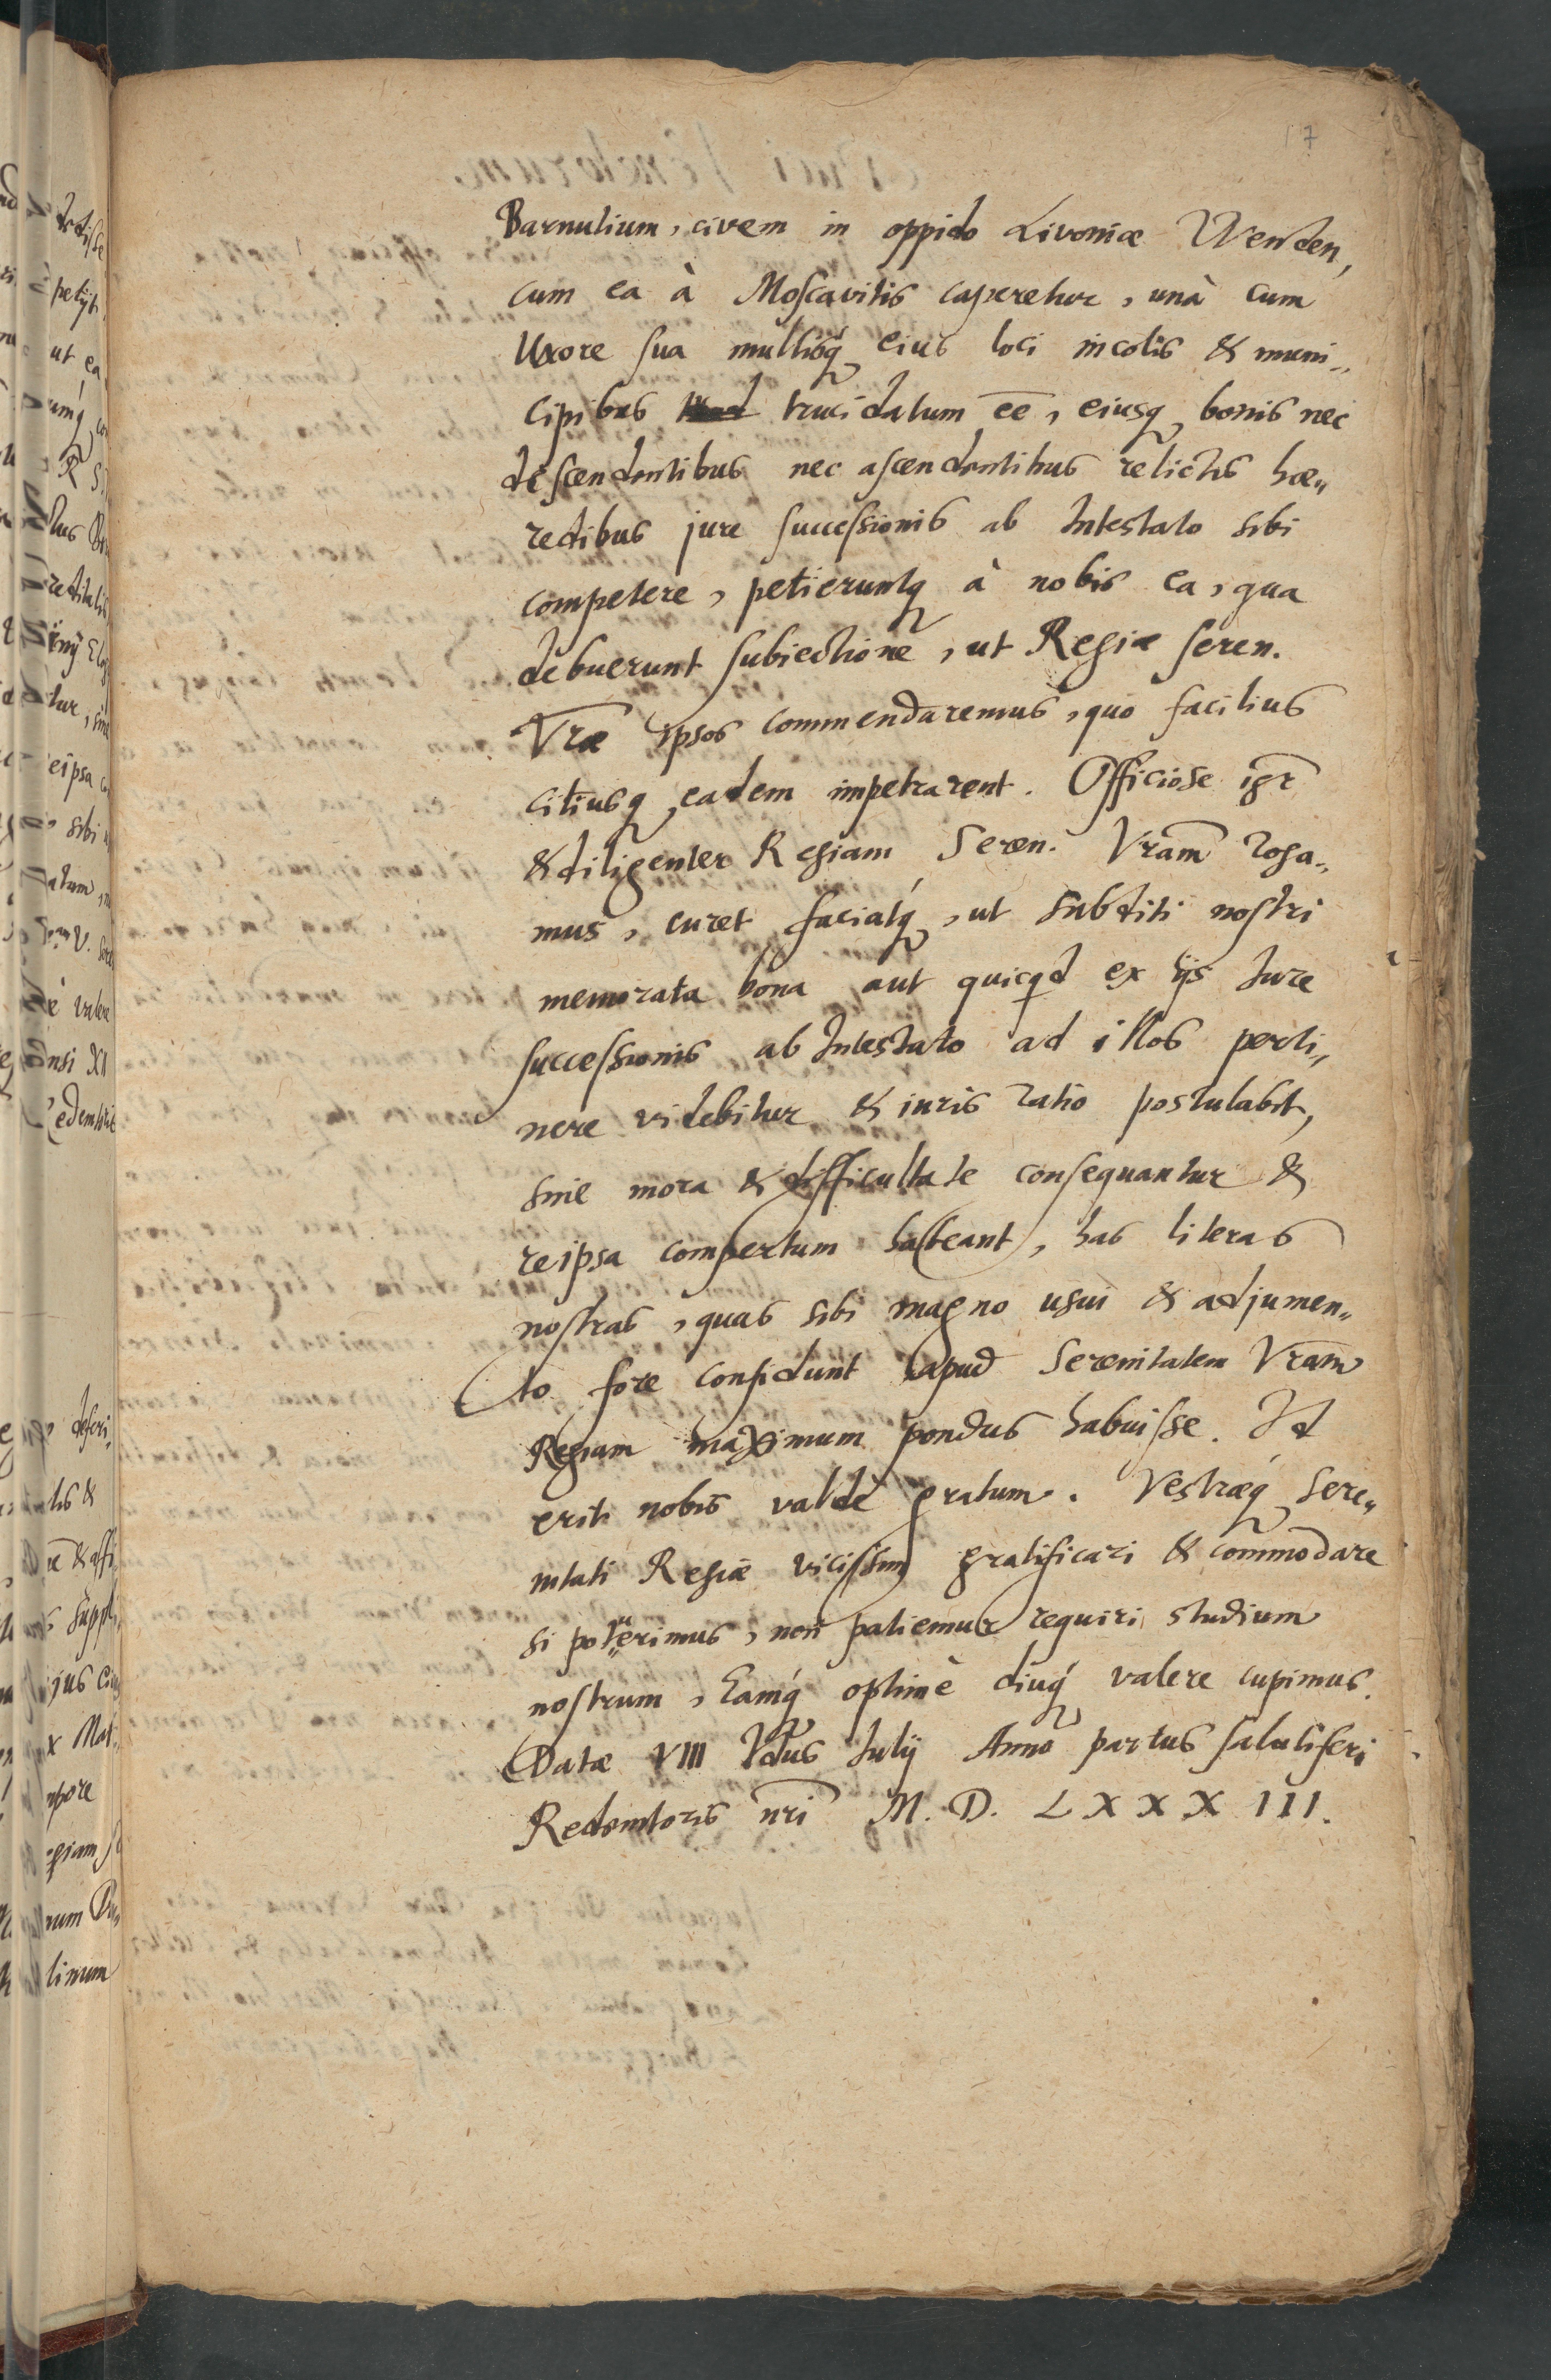 7
Barnulium, civem in oppido Livoniæ Wenden,
cum ea à Moscavitis caperetur, unà cum
Uxore sua multisq́ eius loci incolis & muni„
cipibus trucidatum ēē, eiusq bonis nec
descendentibus nec ascendentibus relictis hæ„
redibus jure successionis ab Intestato sibi
competere, petieruntq à nobis ea, qua
debuerunt subiectione, ut Regiæ seren.
Vr̄æ ipsos commendaremus, quo facilius
citiusq eadem impetrarent. Officiose igr̄
& diligenter Regiam Seren. Vrām roga„
mus, curet faciatq́, ut subditi nostri
memorata bona aut quicqd ex ijs Iure
successionis ab Intestato ad illos perti„
nere videbitur & iuris ratio postulabit,
sine mora & difficultate consequantur &
reipsa compertum habeant, has literas
nostras, quas sibi magno usui & adjumen„
to fore confidunt apud Serenitatem Vrām
Regiam maximum pondus habuisse. Id
erit nobis valdè gratum. Vestræq́ Sere„
nitati Regiæ vicissim gratificari & commodare
si poterimus, non patiemur requiri studium
nostrum, Eamq́ optimè diuq́ valere cupimus.
Datæ VIII Idus Iulij Anno partus salutiferi
Redemtoris nr̄i M. D. LXXXIII.